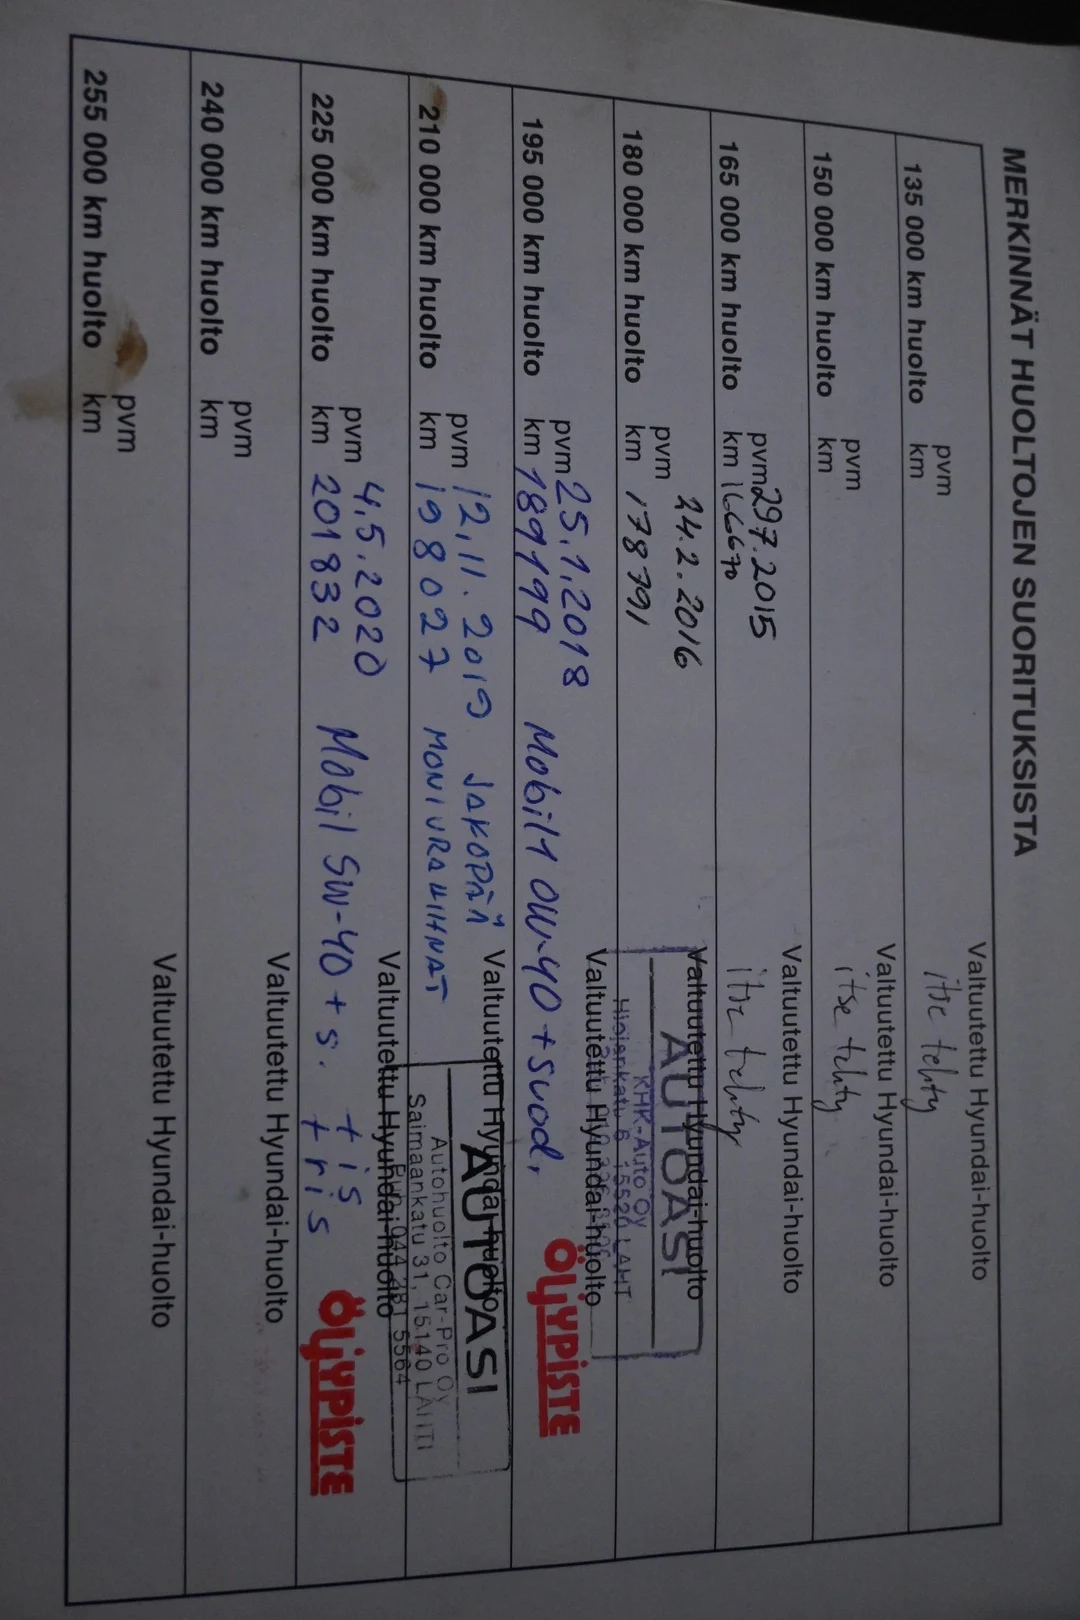 MERKINNÄT HUOLTOJEN SUORITUKSISTA
135 000 km huolto pvm Valtuutettu Hyundai-huolto
km itse tehty
150 000 km huolto pvm Valtuutettu Hyundai-huolto
km itse tehty
165 000 km huolto pvm 29.7.2015 Valtuutettu Hyundai-huolto
km 166670 itse tehty
180 000 km huolto pvm 24.2.2016 Valtuutettu Hyundai-huolto
km 178791
AUTOASI
KHK-Auto Oy
15520 LAHTI
195 000 km huolto pvm 25.1.2018 Valtuutettu Hyundai-huolto
km 189199 Mobil1 0W-40 + suod. ÖLJYPISTE
210 000 km huolto pvm 12.11.2019 JAKOPÄÄ Valtuutettu Hyundai-huolto
km 198027 MONIURAHIHNAT
AUTOASI
Autohuolto Car-Pro Oy
Saimaankatu 31, 15140 LAHTI
Puh. 044 481 5564
225 000 km huolto pvm 4.5.2020 Valtuutettu Hyundai-huolto
km 201832 Mobil 5W-40 + s. + is
+ ris ÖLJYPISTE
240 000 km huolto pvm Valtuutettu Hyundai-huolto
km
255 000 km huolto pvm Valtuutettu Hyundai-huolto
km